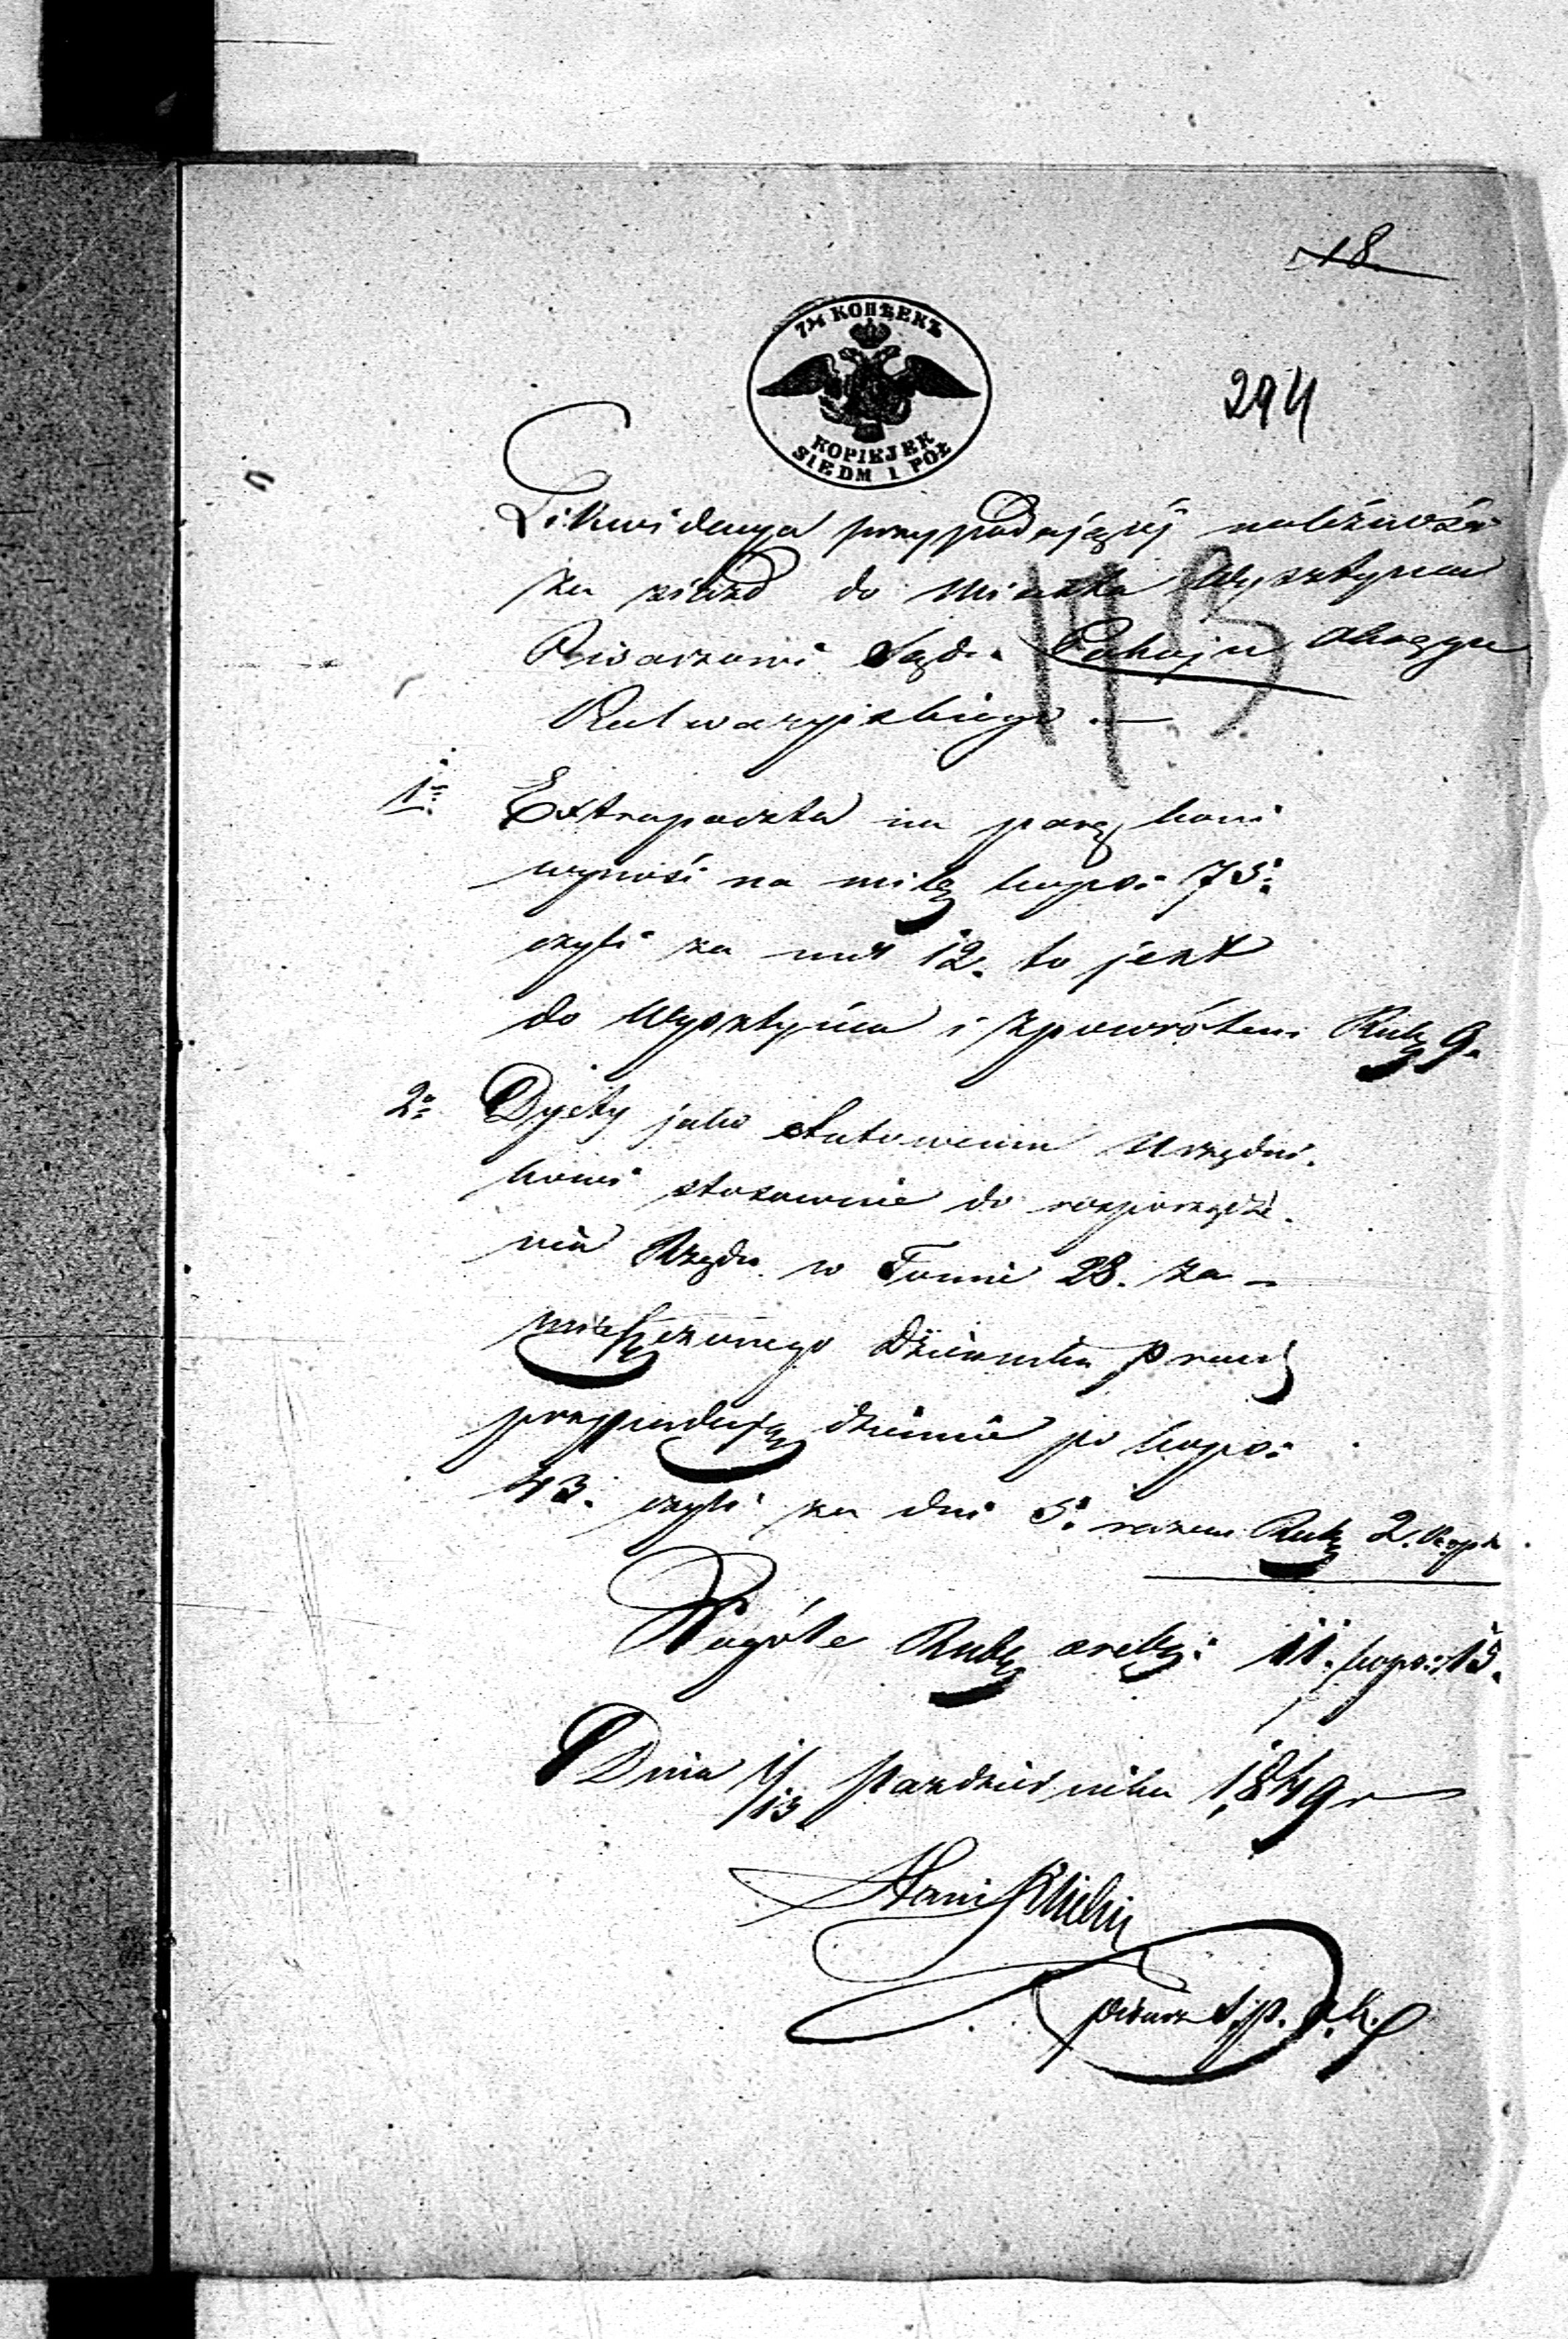 18.
7½ КОПѢЕКЪ
KOPIEJEK
SIEDM I PÓŁ
294
Likwidacya przypadającéj należności
za ziazd do Miasta Wysztynca
Pisarzowi Sądu Pokoju Okręgu
Kalwaryjskiego. —
193
1o Extrapoczta na parę koni
wynosi na milę kopo: 75.
czyli za mil 12. to jest
do Wysztynca i zpowrótem Rub 9.
2o Dyety jako Urzędni-
kowi stosownie do rozporządze-
nia Rządu w Tomie 28. za-
mieszczonego Dziennika Praw
przypadają dziennie po kopo:
43. czyli za dni 5. razem Rub 2. Kop
Wogóle Rub sreb: 11. kopo: 15.
Dnia 1/13 Pazdziernika 1849 r
Pisarz S. P. O. K.